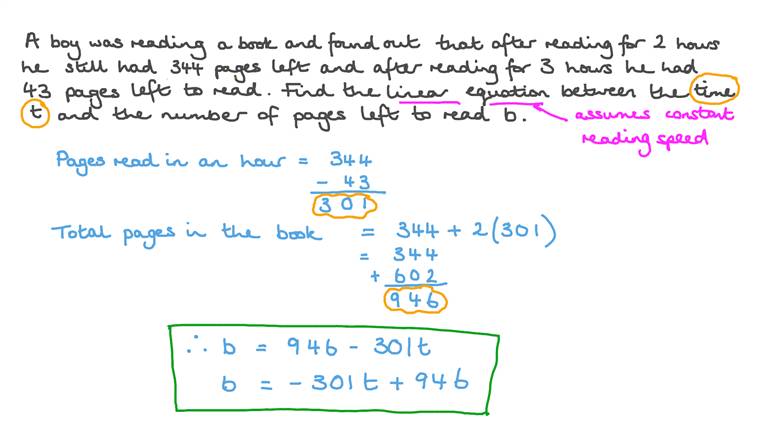 A boy was reading a book and found out that after reading for 2 hours
he still had 344 pages left and after reading for 3 hours he had
43 pages left to read. Find the linear equation between the time
t and the number of pages left to read b.
assumes constant
reading speed
Pages read in an hour = 344
- 43
301
Total pages in the book = 344 + 2(301)
= 344
+ 602
946
∴ b = 946 - 301t
b = -301t + 946